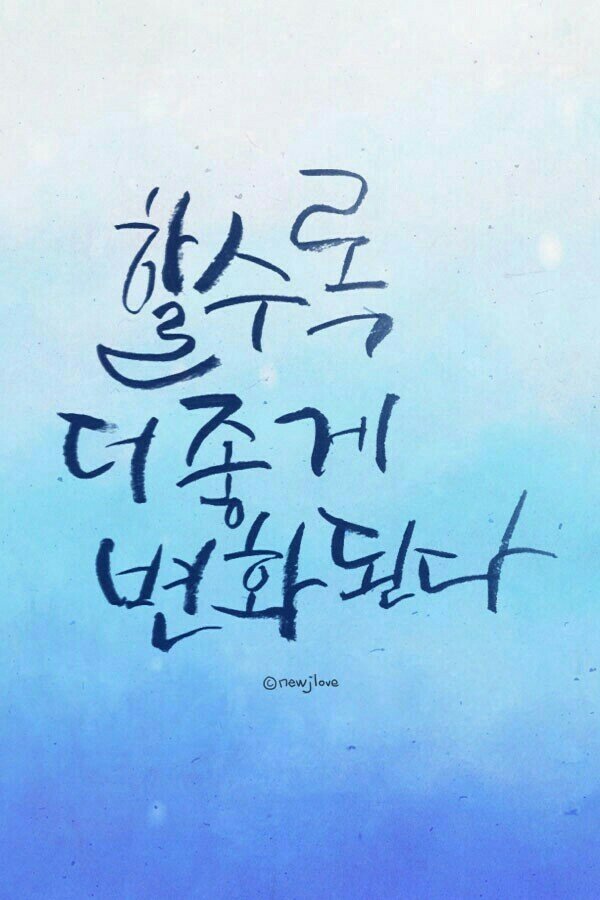 할수록
더 좋게
변화된다
©newjlove